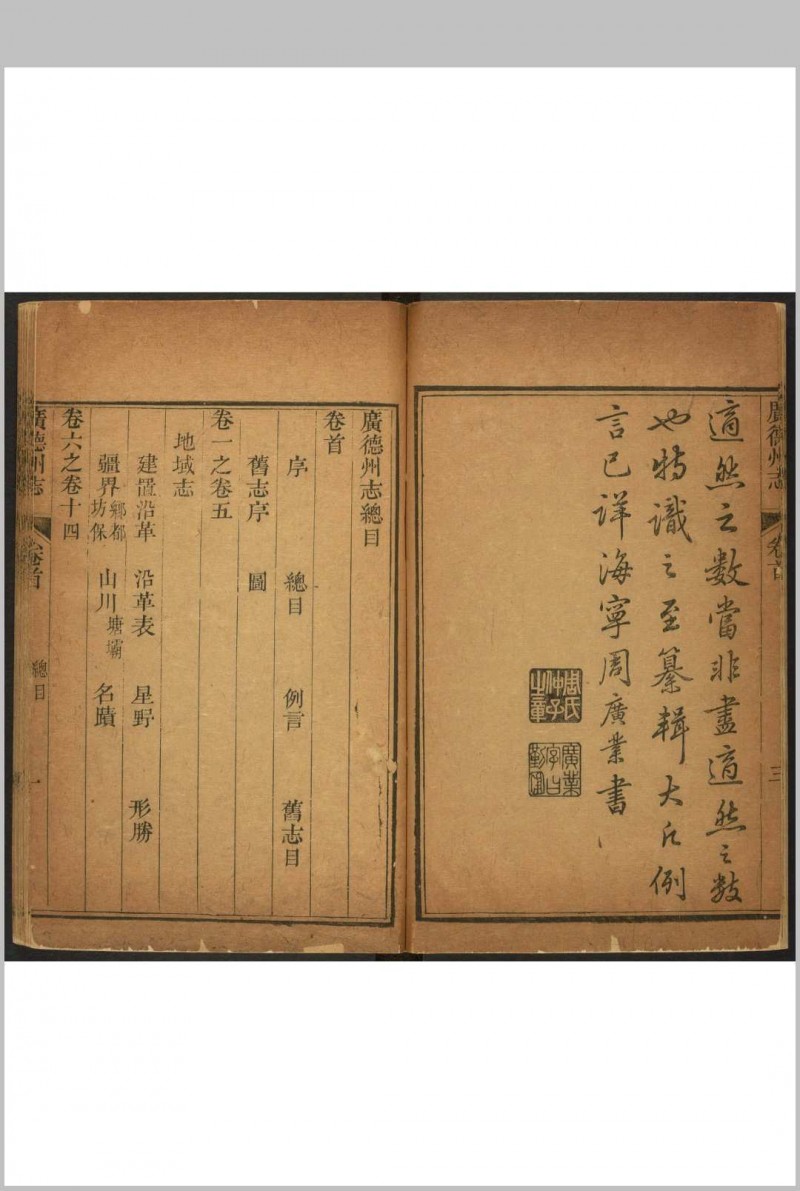 廣德州志
卷首
三
適然之數當非盡適然之數
也特識之至纂輯大凡例
言已詳海寧周廣業書
周氏
仲子
之章
廣業
字曰
勤圃
廣德州志總目
卷首
序 總目 例言 舊志目
舊志序 圖
卷一之卷五
地域志
建置沿革 沿革表 星野 形勝
疆界鄉都坊保 山川塘壩 名蹟
卷六之卷十四
廣德州志
卷首
總目
一